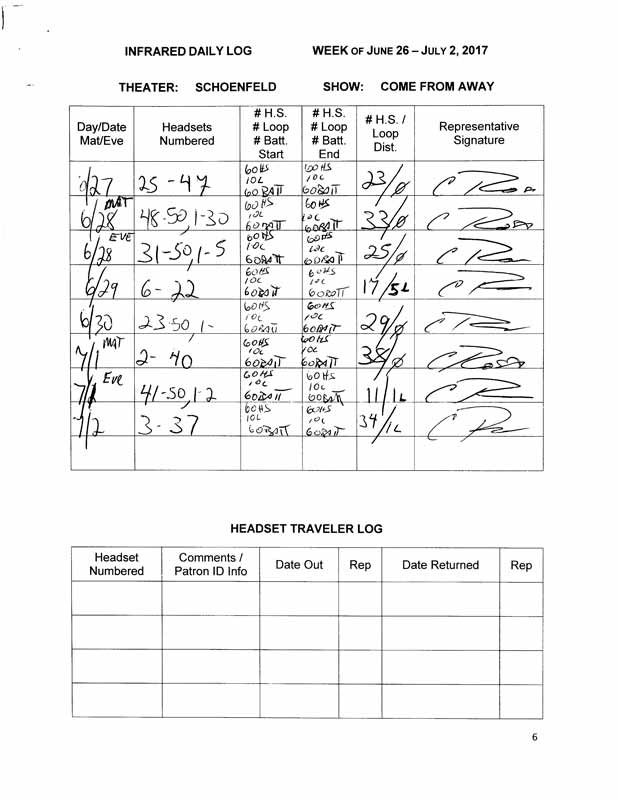 INFRARED DAILY LOG WEEK OF JUNE 26 – JULY 2, 2017
THEATER: SCHOENFELD SHOW: COME FROM AWAY
Day/Date Mat/Eve
Headsets Numbered
# H.S. # Loop # Batt. Start
# H.S. # Loop # Batt. End
# H.S. / Loop Dist.
Representative Signature
6/27 25-47 60HS 10L 60BATT 60HS 10L 60BATT 23/0
MAT 6/28 48-50,1-30 60HS 10L 60BATT 60HS 10L 60BATT 33/0
EVE 6/28 31-50,1-5 60HS 10L 60BATT 60HS 10L 60BATT 25/0
6/29 6-22 60HS 10L 60BATT 60HS 10L 60BATT 17/5L
6/30 23-50,1- 60HS 10L 60BATT 60HS 10L 60BATT 29/0
MAT 7/1 2-40 60HS 10L 60BATT 60HS 10L 60BATT 38/0
Eve 7/1 41-50,1-2 60HS 10L 60BATT 60HS 10L 60BATT 11/1L
7/2 3-37 60HS 10L 60BATT 60HS 10L 60BATT 34/1L
HEADSET TRAVELER LOG
Headset Numbered
Comments / Patron ID Info
Date Out
Rep
Date Returned
Rep
6